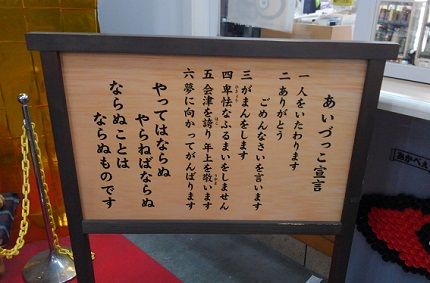 あいづっこ宣言
一 人をいたわります
二 ありがとう
ごめんなさいを言います
三 がまんをします
四 卑怯なふるまいをしません
五 会津を誇り年上を敬います
六 夢に向かってがんばります
やってはならぬ
やらねばならぬ
ならぬことは
ならぬものです
あかべぇ